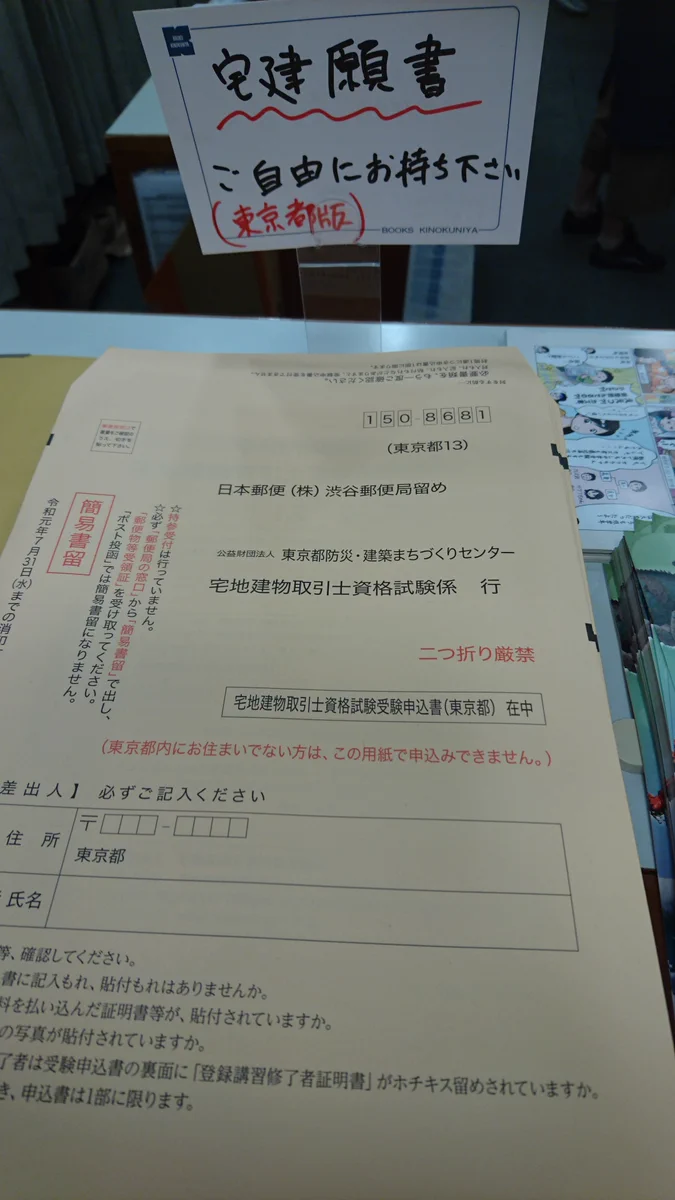 宅建願書
ご自由にお持ち下さい
(東京都版)
BOOKS KINOKUNIYA
必要書類を、もう一度ご確認ください。
150-8681
(東京都13)
日本郵便(株)渋谷郵便局留め
公益財団法人 東京都防災・建築まちづくりセンター
宅地建物取引士資格試験係 行
☆持参受付は行っていません。
☆必ず「郵便局の窓口」から「簡易書留」で出し、
「郵便物等受領証」を受け取ってください。
「ポスト投函」では簡易書留になりません。
簡易書留
令和元年7月31日(水)までの消印
二つ折り厳禁
宅地建物取引士資格試験受験申込書(東京都) 在中
(東京都内にお住まいでない方は、この用紙で申込みできません。)
差出人】 必ずご記入ください
住所
〒
東京都
氏名
等、確認してください。
書に記入もれ、貼付もれはありませんか。
料を払い込んだ証明書等が、貼付されていますか。
の写真が貼付されていますか。
了者は受験申込書の裏面に「登録講習修了者証明書」がホチキス留めされていますか。
き、申込書は1部に限ります。